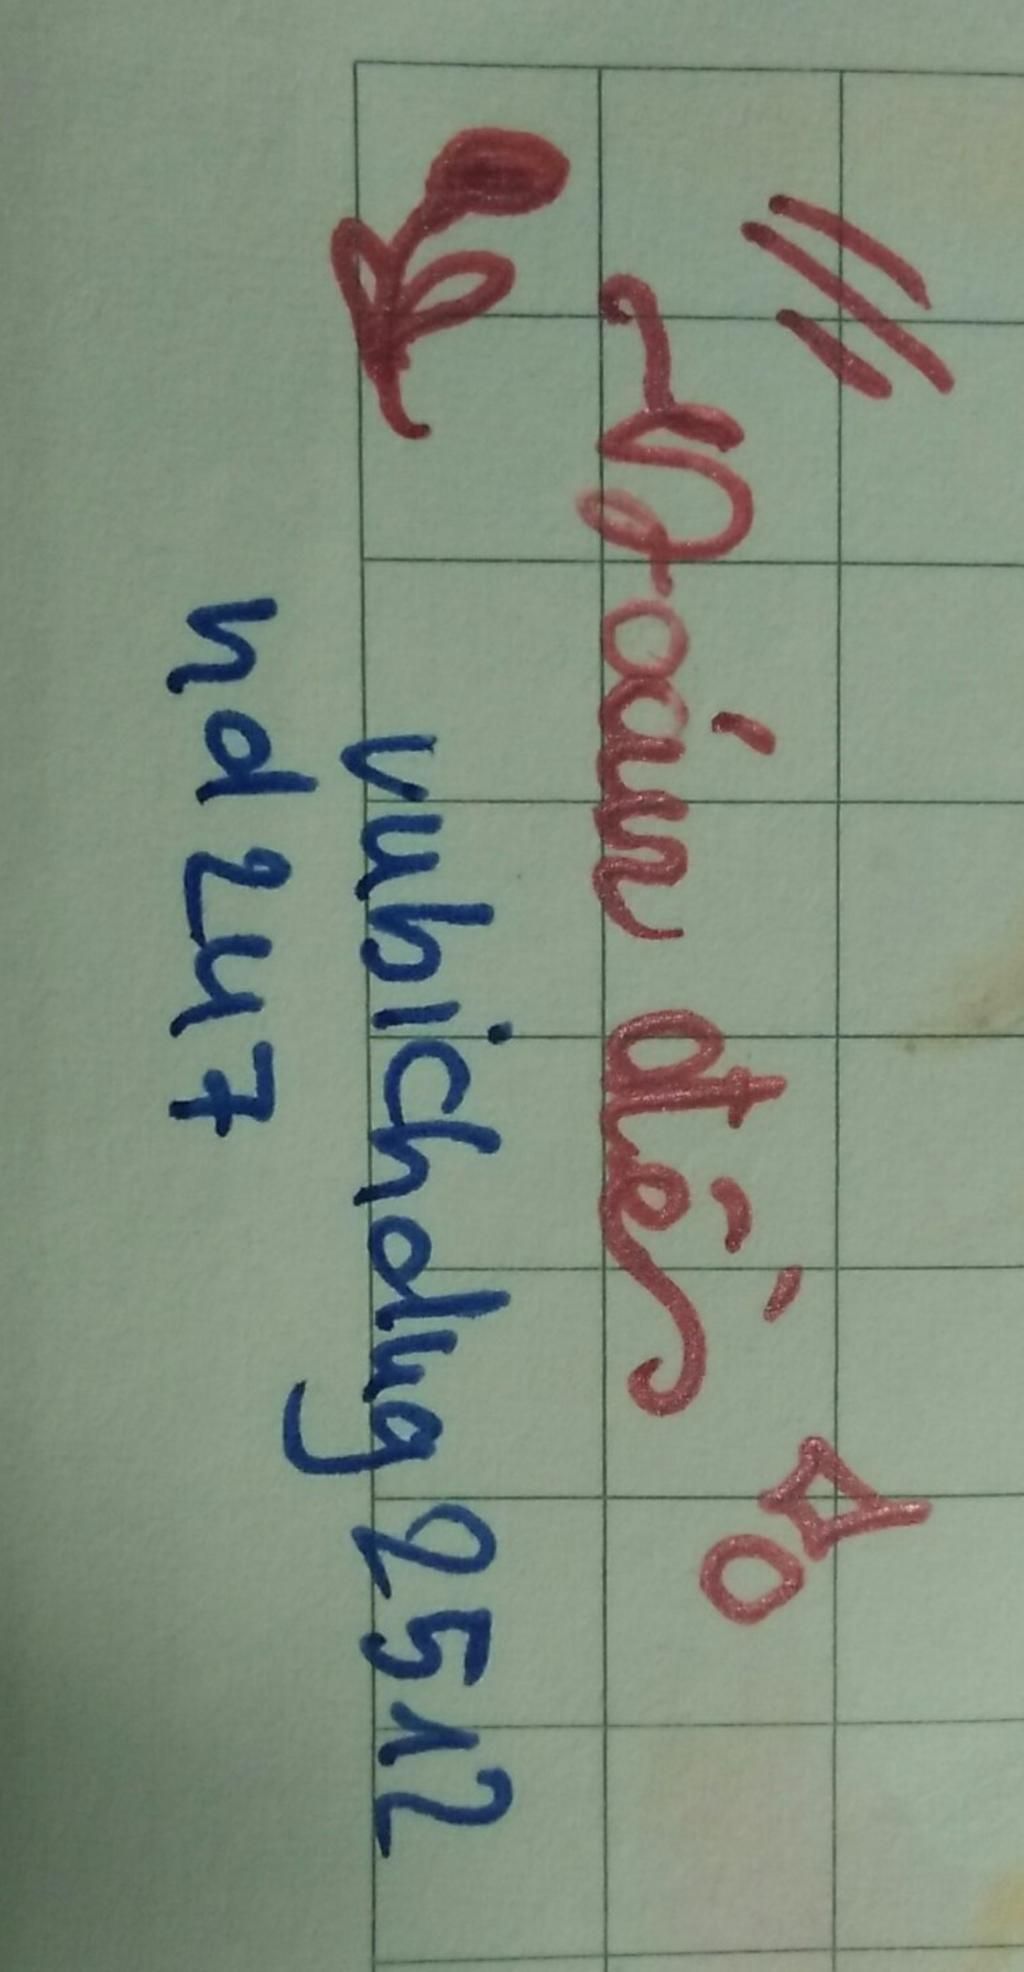 Đoán đề
vubichdug2512
hd247